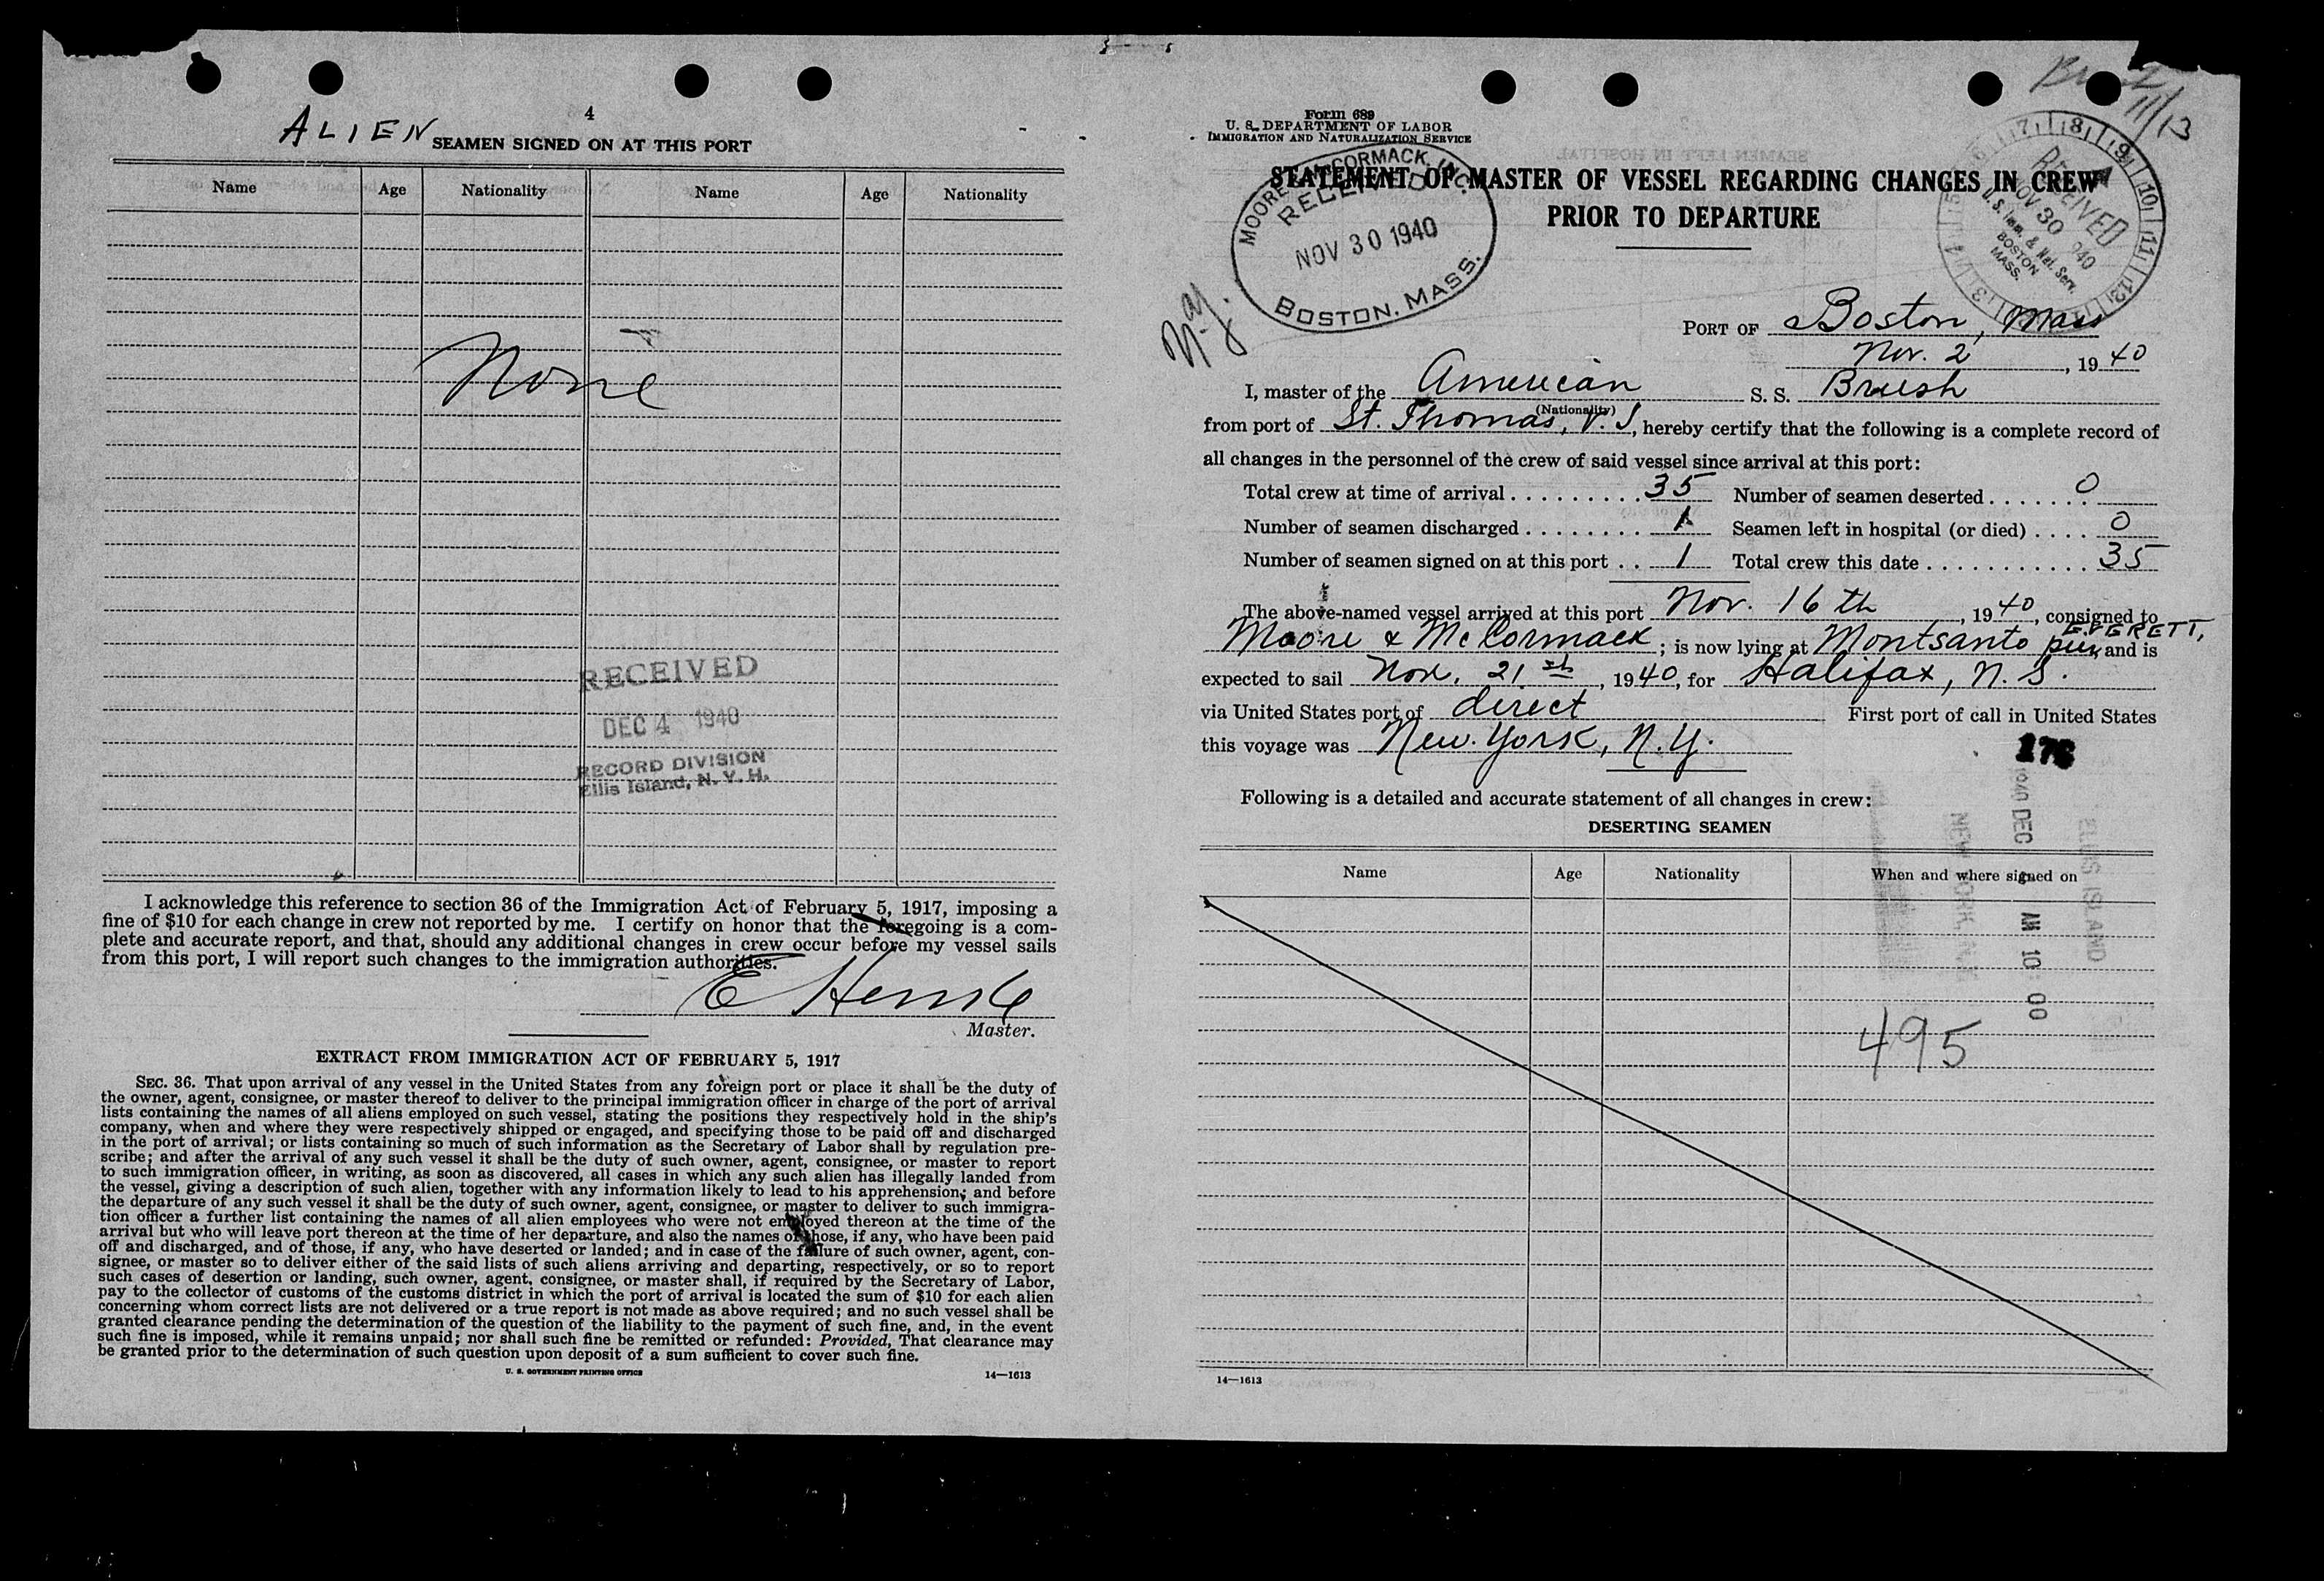 4
ALIEN
SEAMEN SIGNED ON AT THIS PORT
Name Age Nationality Name Age Nationality
None
RECEIVED
DEC 4 1940
RECORD DIVISION
Ellis Island, N. Y. H.
I acknowledge this reference to section 36 of the Immigration Act of February 5, 1917, imposing a
fine of $10 for each change in crew not reported by me. I certify on honor that the foregoing is a com-
plete and accurate report, and that, should any additional changes in crew occur before my vessel sails
from this port, I will report such changes to the immigration authorities.
E
Master.
EXTRACT FROM IMMIGRATION ACT OF FEBRUARY 5, 1917
SEC. 36. That upon arrival of any vessel in the United States from any foreign port or place it shall be the duty of
the owner, agent, consignee, or master thereof to deliver to the principal immigration officer in charge of the port of arrival
lists containing the names of all aliens employed on such vessel, stating the positions they respectively hold in the ship's
company, when and where they were respectively shipped or engaged, and specifying those to be paid off and discharged
in the port of arrival; or lists containing so much of such information as the Secretary of Labor shall by regulation pre-
scribe; and after the arrival of any such vessel it shall be the duty of such owner, agent, consignee, or master to report
to such immigration officer, in writing, as soon as discovered, all cases in which any such alien has illegally landed from
the vessel, giving a description of such alien, together with any information likely to lead to his apprehension; and before
the departure of any such vessel it shall be the duty of such owner, agent, consignee, or master to deliver to such immigra-
tion officer a further list containing the names of all alien employees who were not employed thereon at the time of the
arrival but who will leave port thereon at the time of her departure, and also the names of those, if any, who have been paid
off and discharged, and of those, if any, who have deserted or landed; and in case of the failure of such owner, agent, con-
signee, or master so to deliver either of the said lists of such aliens arriving and departing, respectively, or so to report
such cases of desertion or landing, such owner, agent, consignee, or master shall, if required by the Secretary of Labor,
pay to the collector of customs of the customs district in which the port of arrival is located the sum of $10 for each alien
concerning whom correct lists are not delivered or a true report is not made as above required; and no such vessel shall be
granted clearance pending the determination of the question of the liability to the payment of such fine, and, in the event
such fine is imposed, while it remains unpaid; nor shall such fine be remitted or refunded: Provided, That clearance may
be granted prior to the determination of such question upon deposit of a sum sufficient to cover such fine.
U. S. GOVERNMENT PRINTING OFFICE 14—1613
11/13
Form 689
U. S. DEPARTMENT OF LABOR
IMMIGRATION AND NATURALIZATION SERVICE
STATEMENT OF MASTER OF VESSEL REGARDING CHANGES IN CREW
PRIOR TO DEPARTURE
RECEIVED
NOV 30 1940
BOSTON, MASS.
RECEIVED
NOV 30 940
U. S. Imm. & Nat. Serv.
BOSTON
MASS.
N.Y.
PORT OF Boston, Mass
Nov. 2, 1940
I, master of the American S. S. Brush
(Nationality)
from port of St. Thomas, V. I, hereby certify that the following is a complete record of
all changes in the personnel of the crew of said vessel since arrival at this port:
Total crew at time of arrival . . . . . . . . . 35 Number of seamen deserted . . . . . . 0
Number of seamen discharged . . . . . . . . 1 Seamen left in hospital (or died) . . . . 0
Number of seamen signed on at this port . . 1 Total crew this date . . . . . . . . . . . 35
The above-named vessel arrived at this port Nov. 16th, 1940, consigned to
EVERETT,
Moore & McCormack; is now lying at Montsanto pier, and is
expected to sail Nov. 21st, 1940, for Halifax, N. S.
via United States port of direct First port of call in United States
this voyage was New York, N.Y.
176
Following is a detailed and accurate statement of all changes in crew:
DESERTING SEAMEN
Name Age Nationality When and where signed on
1940 DEC AM 10 00
ELLIS ISLAND
495
14—1613